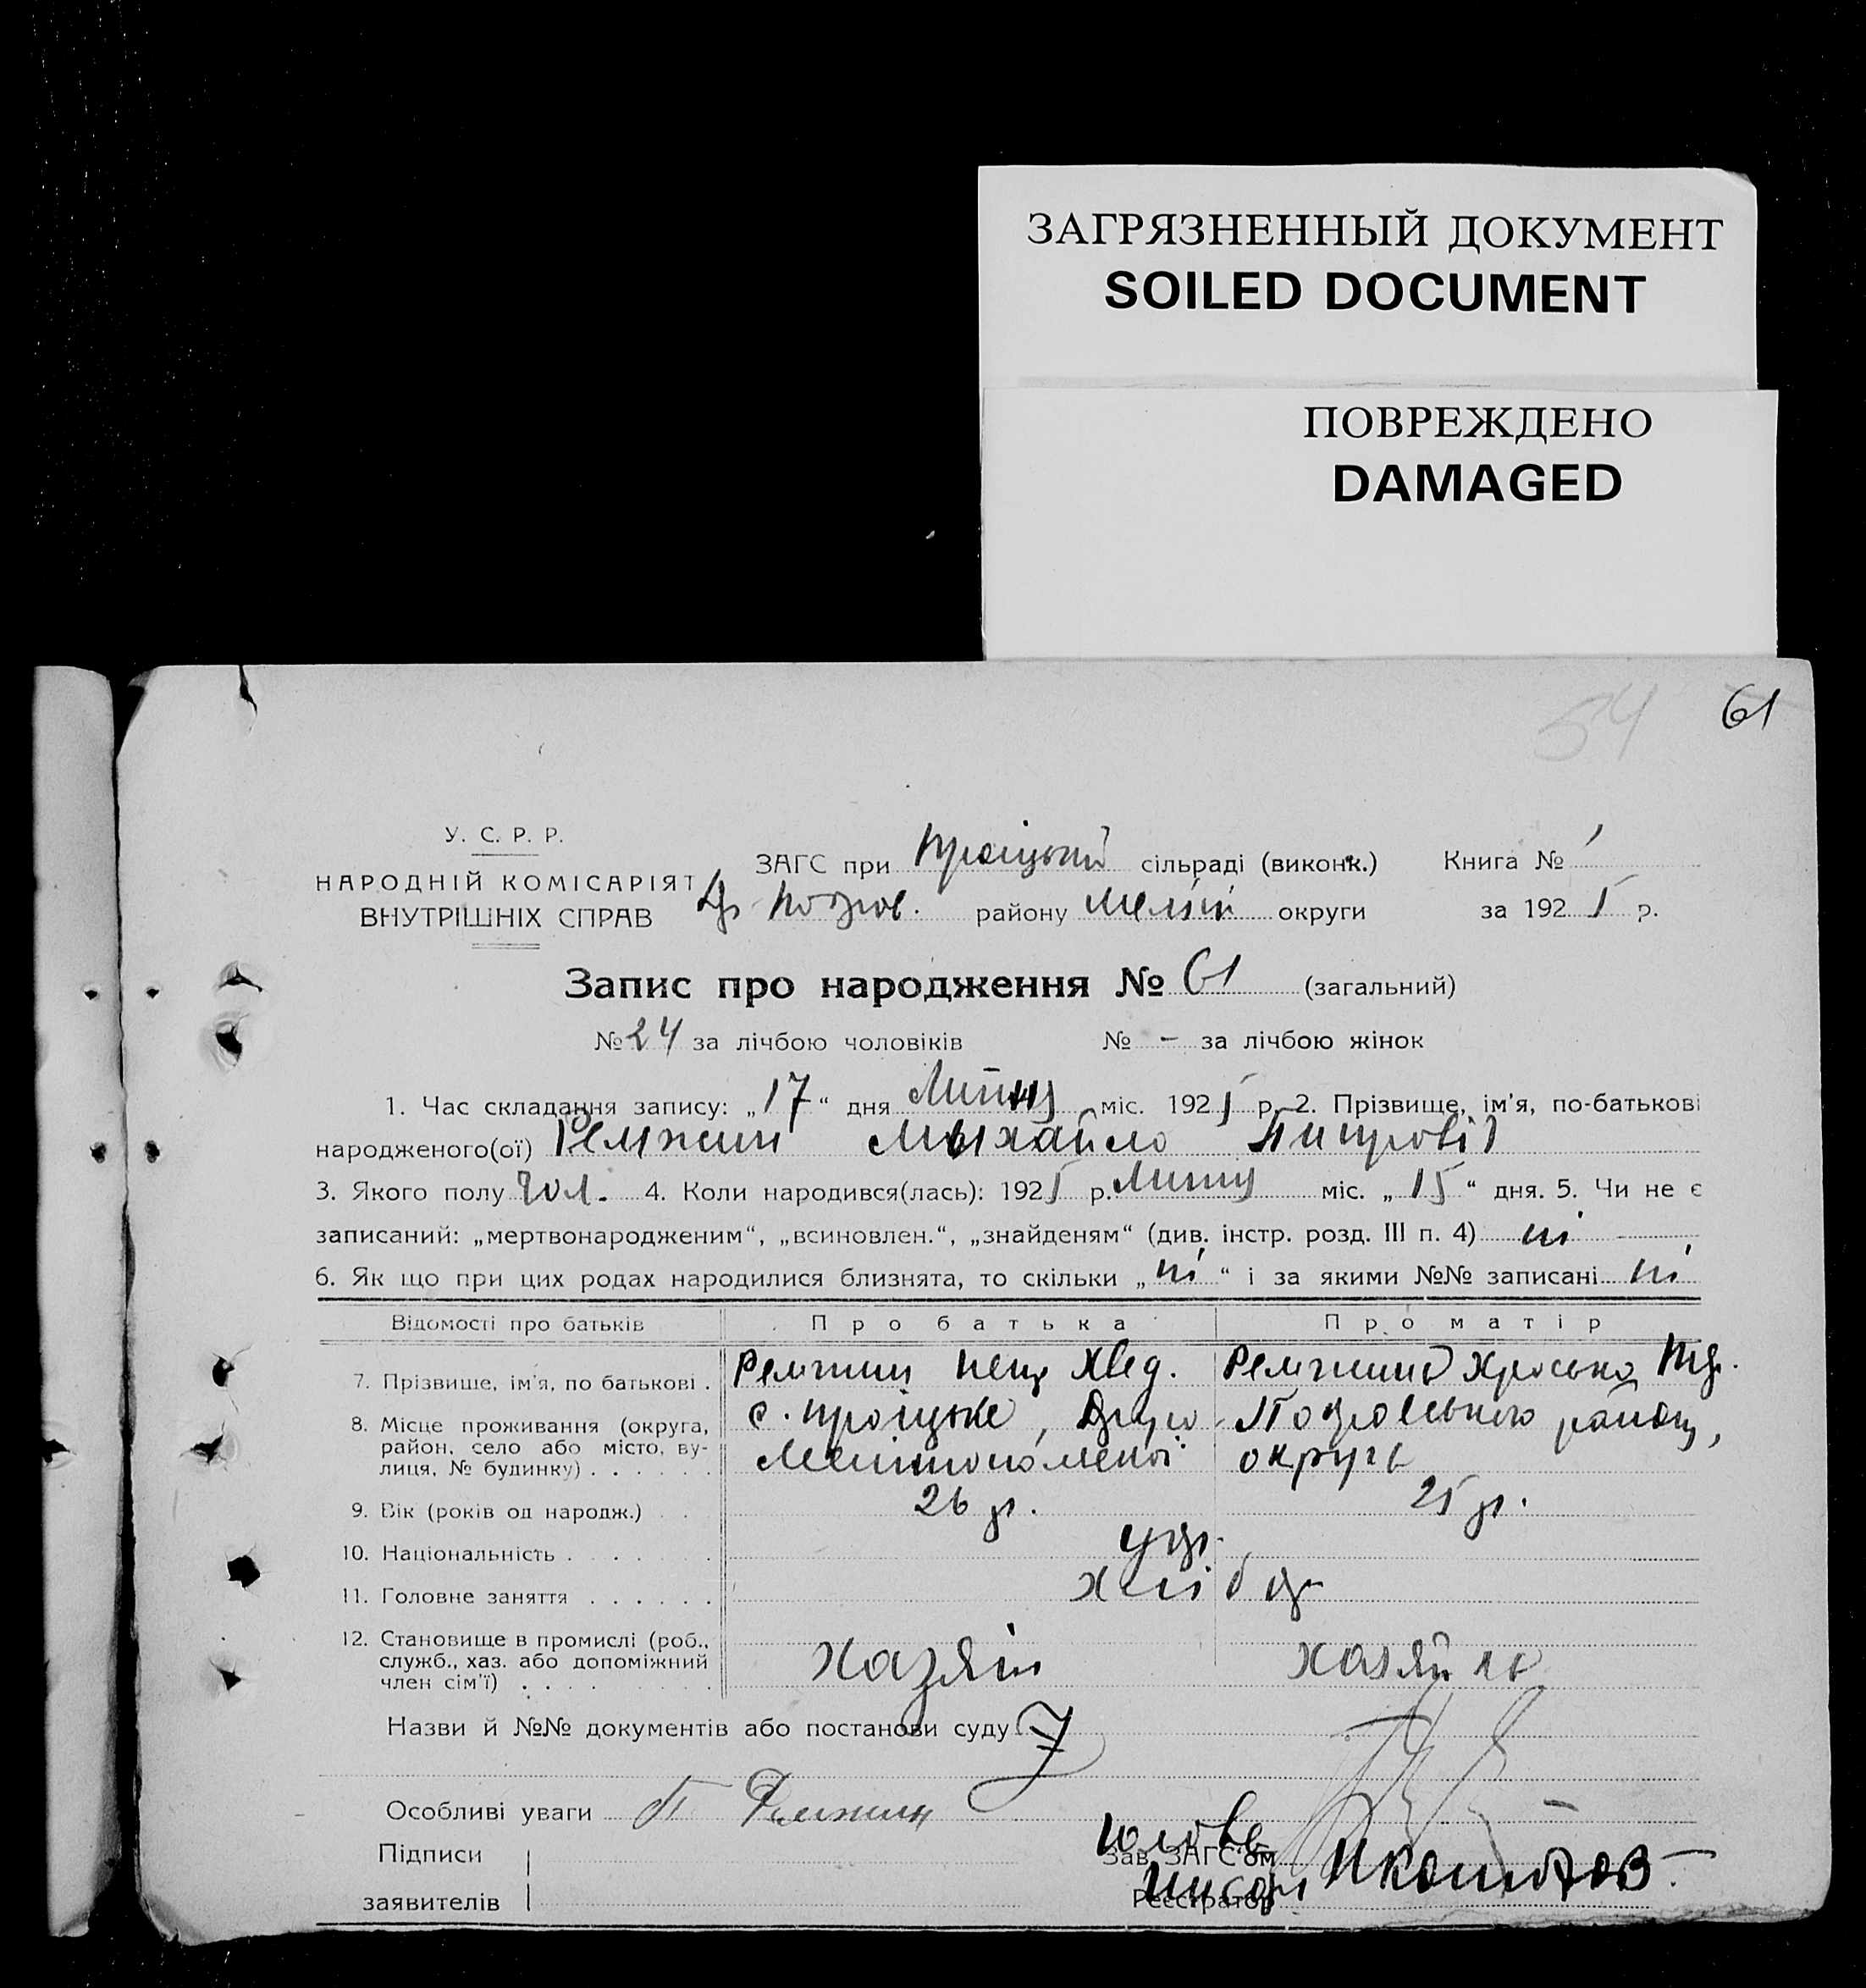 ЗАГРЯЗНЕННЫЙ ДОКУМЕНТ
SOILED DOCUMENT
ПОВРЕЖДЕНО
DAMAGED
54 61
У. С. Р. Р.
НАРОДНІЙ КОМІСАРІЯТ
ВНУТРІШНІХ СПРАВ
ЗАГС при Троіцькій сільраді (виконк.) Книга № 1
району Меліт округи за 1925 р.
Запис про народження № 61 (загальний)
№ 24 за лічбою чоловіків № - за лічбою жінок
1. Час складання запису: „17“ дня Липня міс. 1925 р. 2. Прізвище, ім'я, по-батькові
народженого(ої) Ремжин Михайло
3. Якого полу чол. 4. Коли народився(лась): 1925 р. Липня міс. „15“ дня. 5. Чи не є
записаний: „мертвонародженим“, „всиновлен.“, „знайденям“ (див. інстр. розд. III п. 4) ні
6. Як що при цих родах народилися близнята, то скільки „ні“ і за якими №№ записані ні
Відомості про батьків Про батька Про матір
7. Прізвище, ім'я, по батькові . Ремжин Хвед. Ремжина
8. Місце проживання (округа, район, село або місто, вулиця, № будинку) . . . . . . с. Троіцьке, району,
Мелітопольської округи
9. Вік (років од народж.) . . 26 р. 25 р.
10. Національність . . . . . . укр.
11. Головне заняття . . . . . . хлібор
12. Становище в промислі (роб.,
служб., хаз. або допоміжний
член сім'ї) . . . . хазяїн хазяйка
Назви й №№ документів або постанови суду
Особливі уваги П Ремжин
Підписи
заявителів
Голова
Зав. ЗАГС'ом
Писарь
Реєстратор